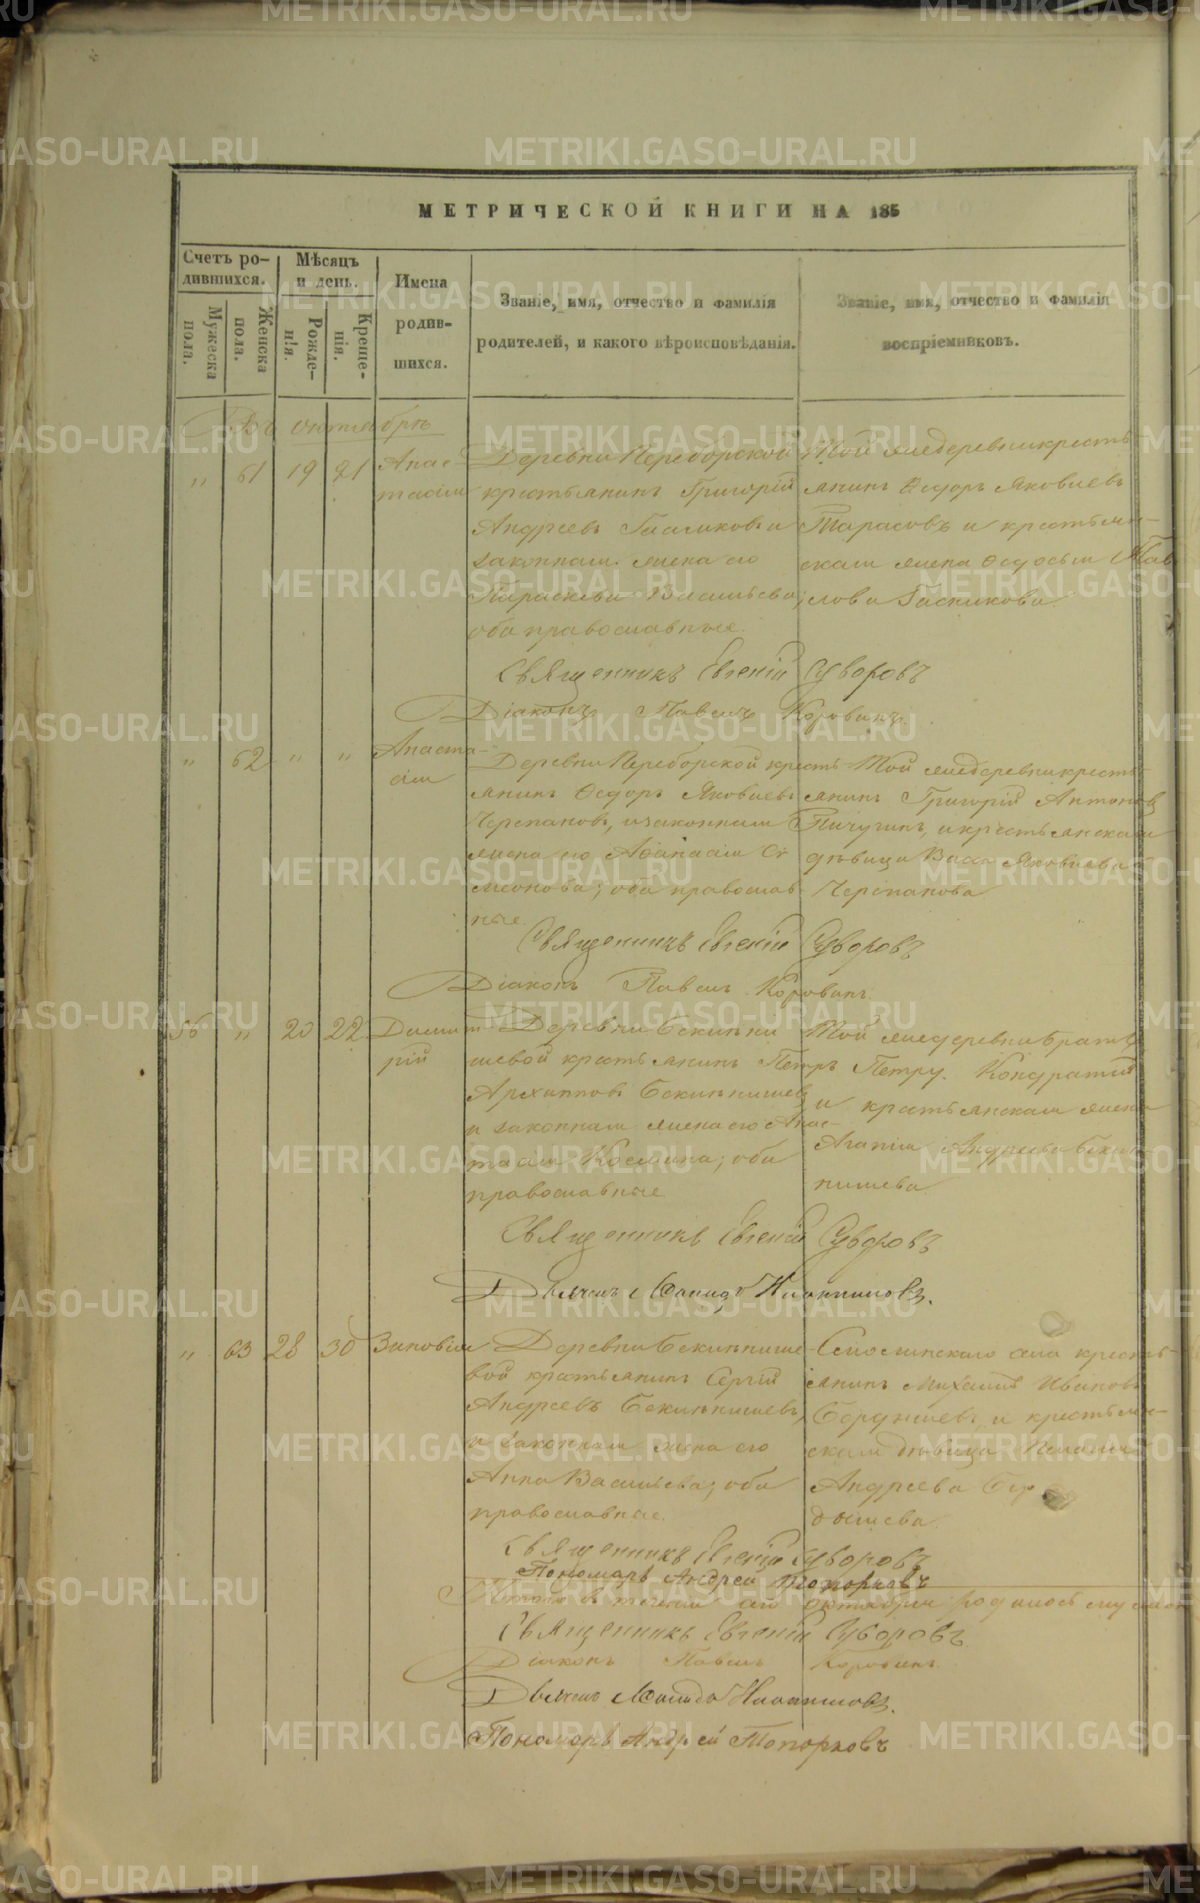 МЕТРИЧЕСКОЙ КНИГИ НА 185
Счетъ ро-
дившихся.
Мѣсяцъ
и день.
Имена
родив-
шихся.
Званіе, имя, отчество и фамилія
родителей, и какого вѣроисповѣданія.
Званіе, имя, отчество и фамилія
воспріемниковъ.
Мужеска
пола.
Женска
пола.
Рожде-
нія.
Креще-
нія.
Въ октябрѣ
" 61 19 21 Анас-
тасія
Деревни Переборской
крестьянинъ Григорій
Андреевъ и
законная жена его
Параскева Васильева;
оба православные.
Той же деревни кресть-
янинъ Ѳедоръ Яковлевъ
Тарасовъ и крестьян-
ская жена Ѳедосья Пав-
лова
Священникъ Евгеній Суворовъ
Діаконъ Павелъ Коровинъ.
" 62 " " Анаста-
сія
Деревни Переборской кресть-
янинъ Ѳедоръ Яковлевъ
Черепановъ, и законная
жена его Аѳанасія Си-
меонова; оба православ-
ные.
Той же деревни кресть-
янинъ Григорій Антоновъ
Пичугинъ, и крестьянская
дѣвица Васса Яковлева
Черепанова
Священникъ Евгеній Суворовъ
Діаконъ Павелъ Коровинъ
56 " 20 22 Димит-
рій
Деревни Бекленишевой
крестьянинъ Петръ
Архиповъ Бекленищевъ
и законная жена его Анас-
тасія Космина; оба
православные
Той же деревни братъ
Петру. Кондратій
и крестьянская жена
Агапія Андреева Беклен-
ищева
Священникъ Евгеній Суворовъ
Дьячекъ
" 63 28 30 Зиновія
Деревни Бекленище-
вой крестьянинъ Сергій
Андреевъ Бекленищевъ,
и законная жена его
Анна Васильева; оба
православные.
села кресть-
янинъ Михаилъ Ивановъ
Бердышевъ и крестьян-
ская дѣвица
Андреева Бер-
дышева.
Священникъ Евгеній Суворовъ
Пономарь Андрей Топорковъ
Итого въ теченіи сего октября родилось
Священникъ Евгеній Суворовъ
Діаконъ Павелъ Коровинъ.
Дьячекъ
Пономарь Андрей Топорковъ
METRIKI.GASO-URAL.RU